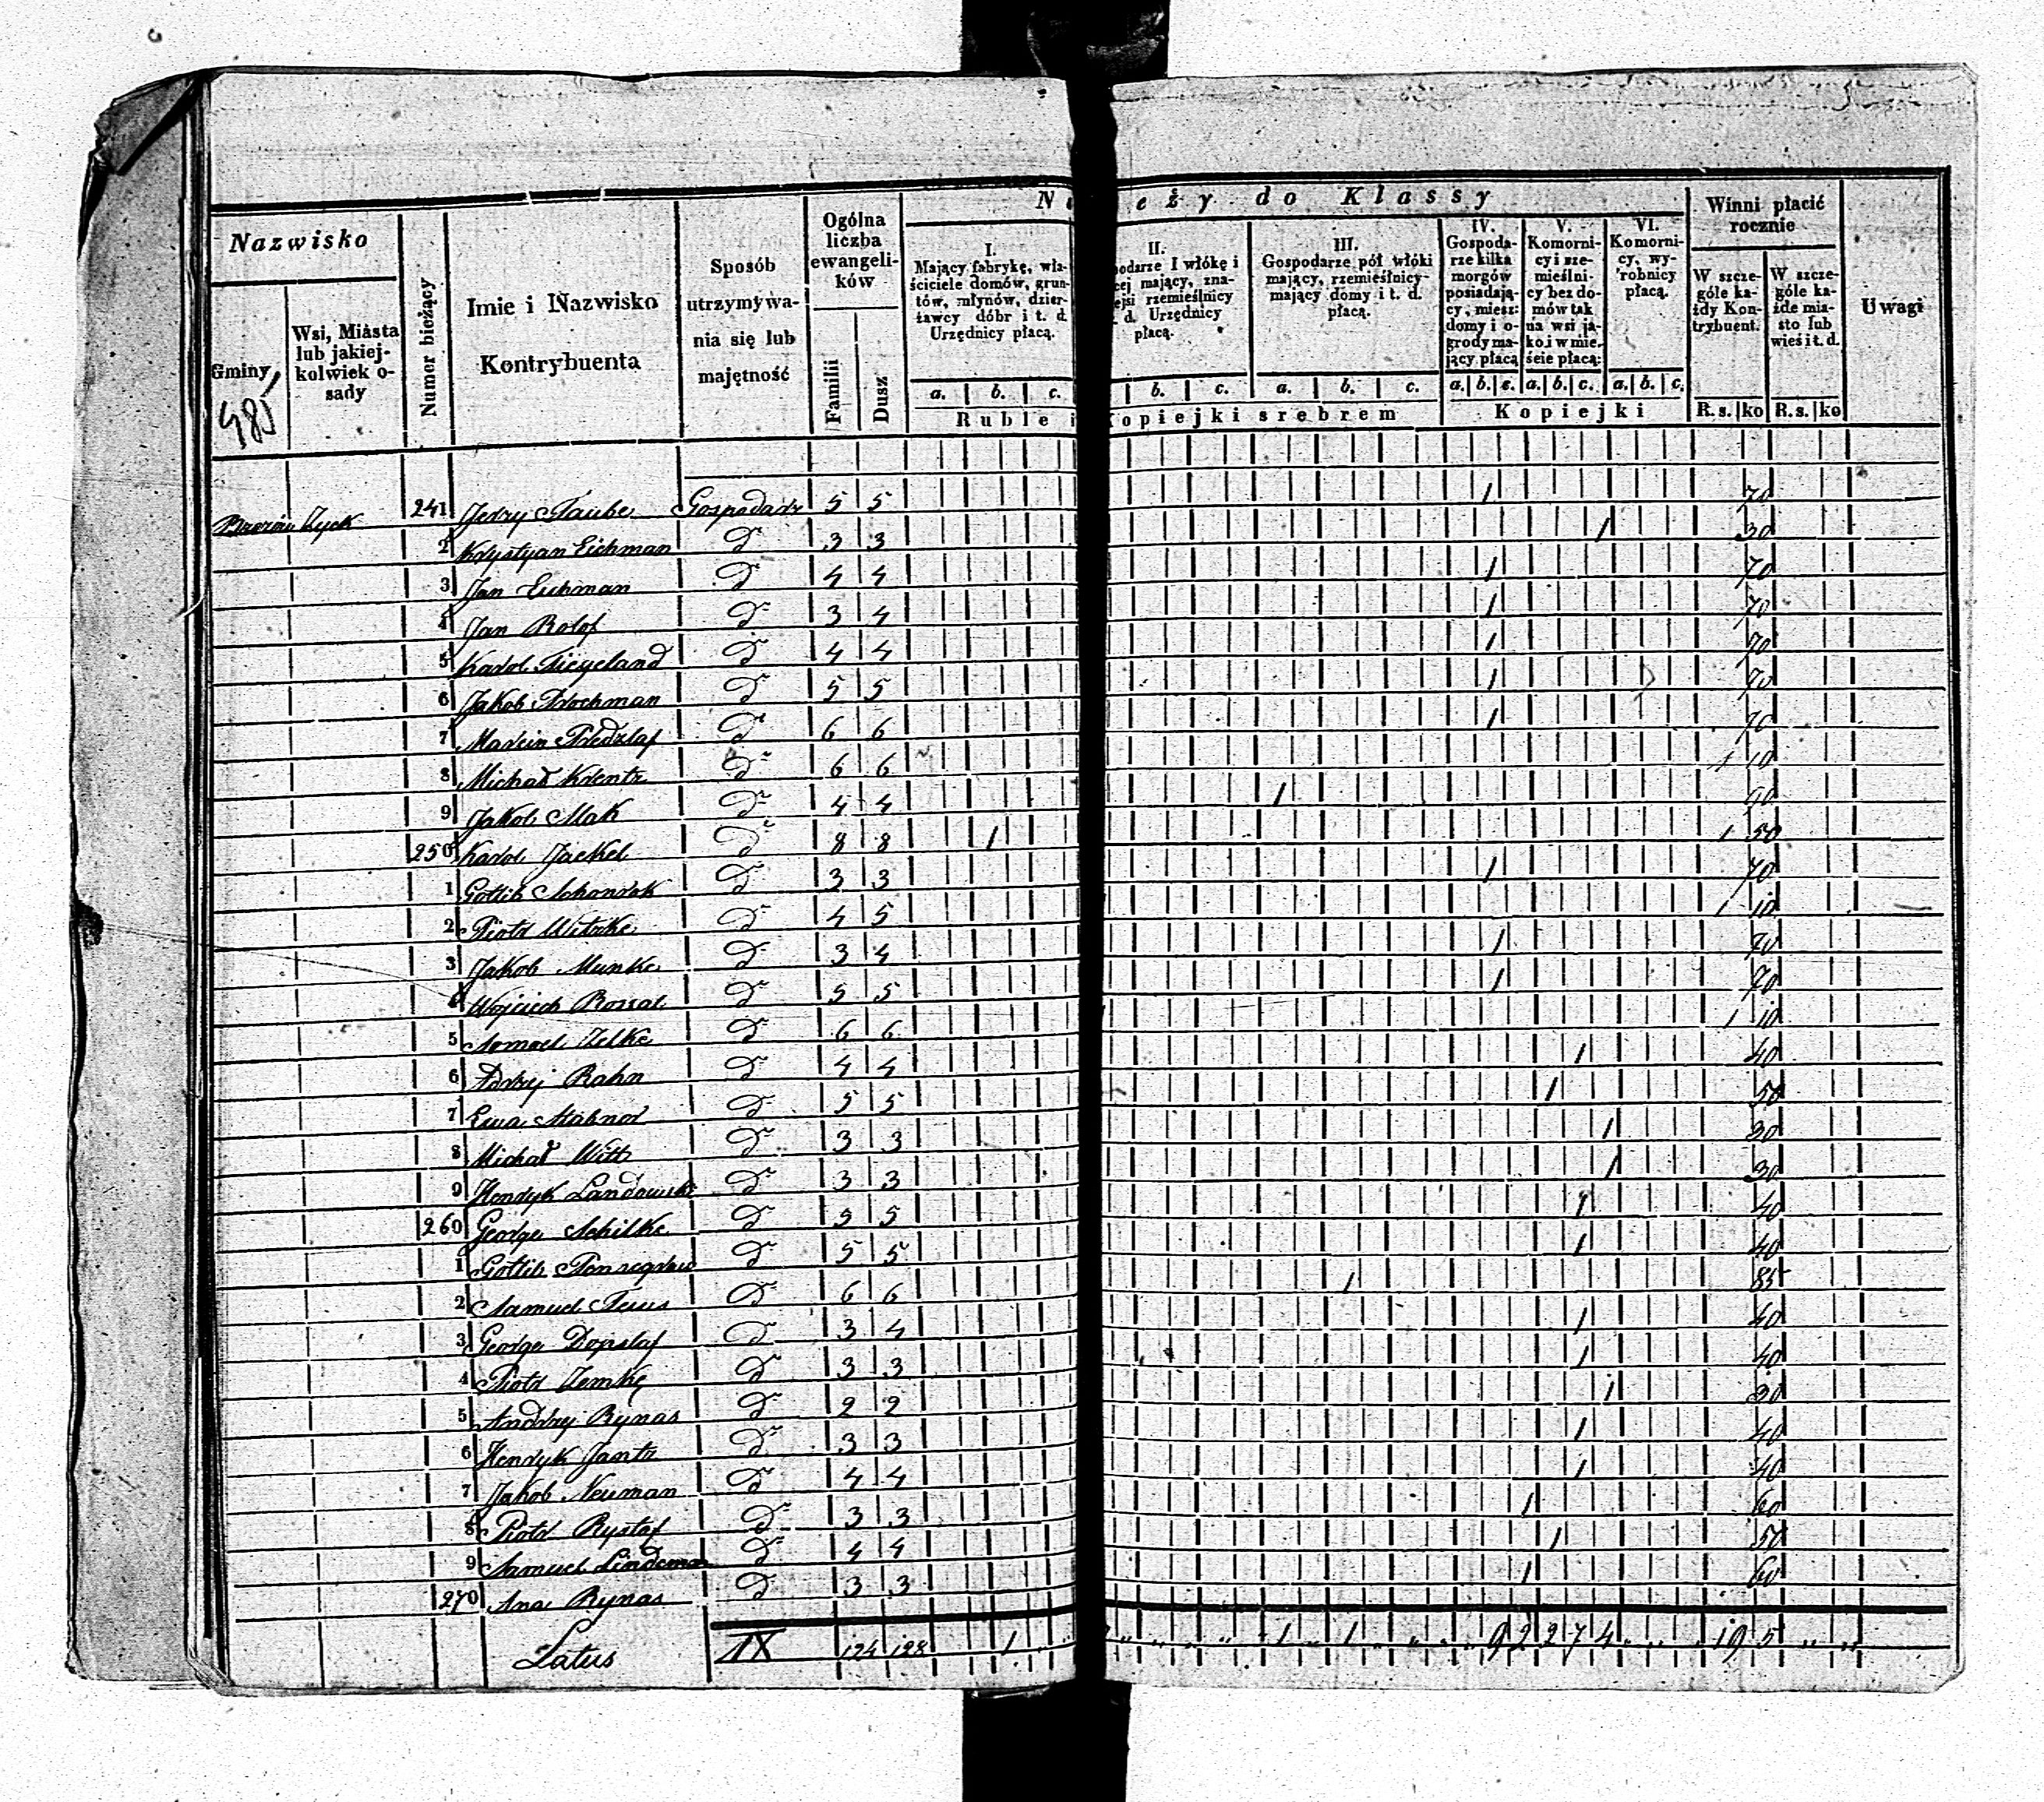 Nazwisko
Gminy
Wsi, Miasta lub jakiejkolwiek o-sady
Numer bieżący
Imie i Nazwisko Kontrybuenta
Sposób utrzymywa-nia się lub majętność
Ogólna liczba ewangeli-ków
Familii
Dusz
N eży do Klassy
I. Mający fabrykę, wła-ściciele domów, grun-tów, młynów, dzier-żawcy dóbr i t. d. Urzędnicy płacą.
II. odarze I włókę i cej mający, zna- ejsi rzemieślnicy d. Urzędnicy płacą.
III. Gospodarze pół włóki mający, rzemieślnicy mający domy i t. d. płacą.
IV. Gospoda-rze kilka morgów posiadają-cy, miesz: domy i o-grody ma-jący płacą
V. Komorni-cy i rze-mieślni-cy bez do-mów tak na wsi ja-ko i w mie-ście płacą:
VI. Komorni-cy, wy-robnicy płacą.
Winni płacić rocznie
W szcze-góle ka-żdy Kon-trybuent.
W szcze-góle ka-żde mia-sto lub wieś i t. d.
Uwagi
a. b. c. b. c. a. b. c. a. b. c. a. b. c. a. b. c.
Ruble i Kopiejki srebrem Kopiejki R.s. ko R.s. ko
485
Zyck 241 Jerzy Taube Gospodarz 5 5 1 70
2 Krystyan Eichman d 3 3 1 30
3 Jan Eichman d 4 4 1 70
4 Jan Rolof d 3 4 1 70
5 Karol d 4 4 1 70
6 Jakob d 5 5 1 70
7 Marcin d 6 6 1 70
8 Michał Krentz d 6 6 1 10
9 Jakob Mak d 4 4 1 90
250 Karol Jaekel d 8 8 1 1 50
1 Gotlib d 3 3 1 70
2 Piotr Witzke d 4 5 1 10
3 Jakob Munke d 3 4 1 70
4 Wojciech d 5 5 1 70
5 Samuel Zelke d 6 6 1 10
6 Rahn d 4 4 1 40
7 Ewa d 5 5 1 50
8 Michał Witt d 3 3 1 30
9 Henryk Landowski d 3 3 1 30
260 George Schilke d 5 5 1 40
1 Gotlib d 5 5 1 40
2 Samuel d 6 6 1 85
3 George Dopslaf d 3 4 1 40
4 Piotr Zemke d 3 3 1 40
5 Andrzej Rynas d 2 2 1 30
6 Henryk Jantz d 3 3 1 40
7 Jakob Neuman d 4 4 1 40
8 Piotr d 3 3 1 60
9 Samuel Lindeman d 4 4 1 50
270 Ana Rynas d 3 3 1 60
Latus IX 124 128 1 1 1 9 2 2 7 4 19 5